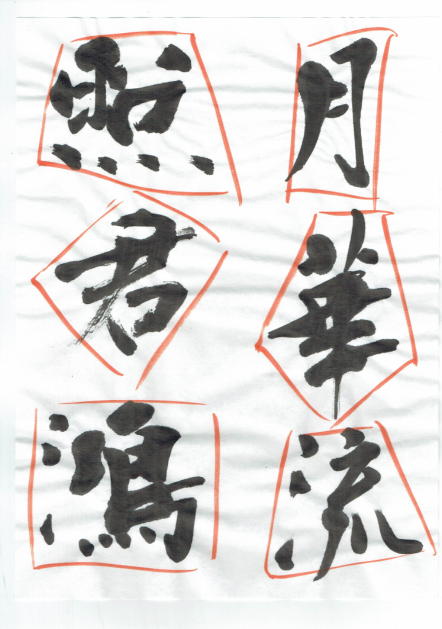 月華流
照君鴻